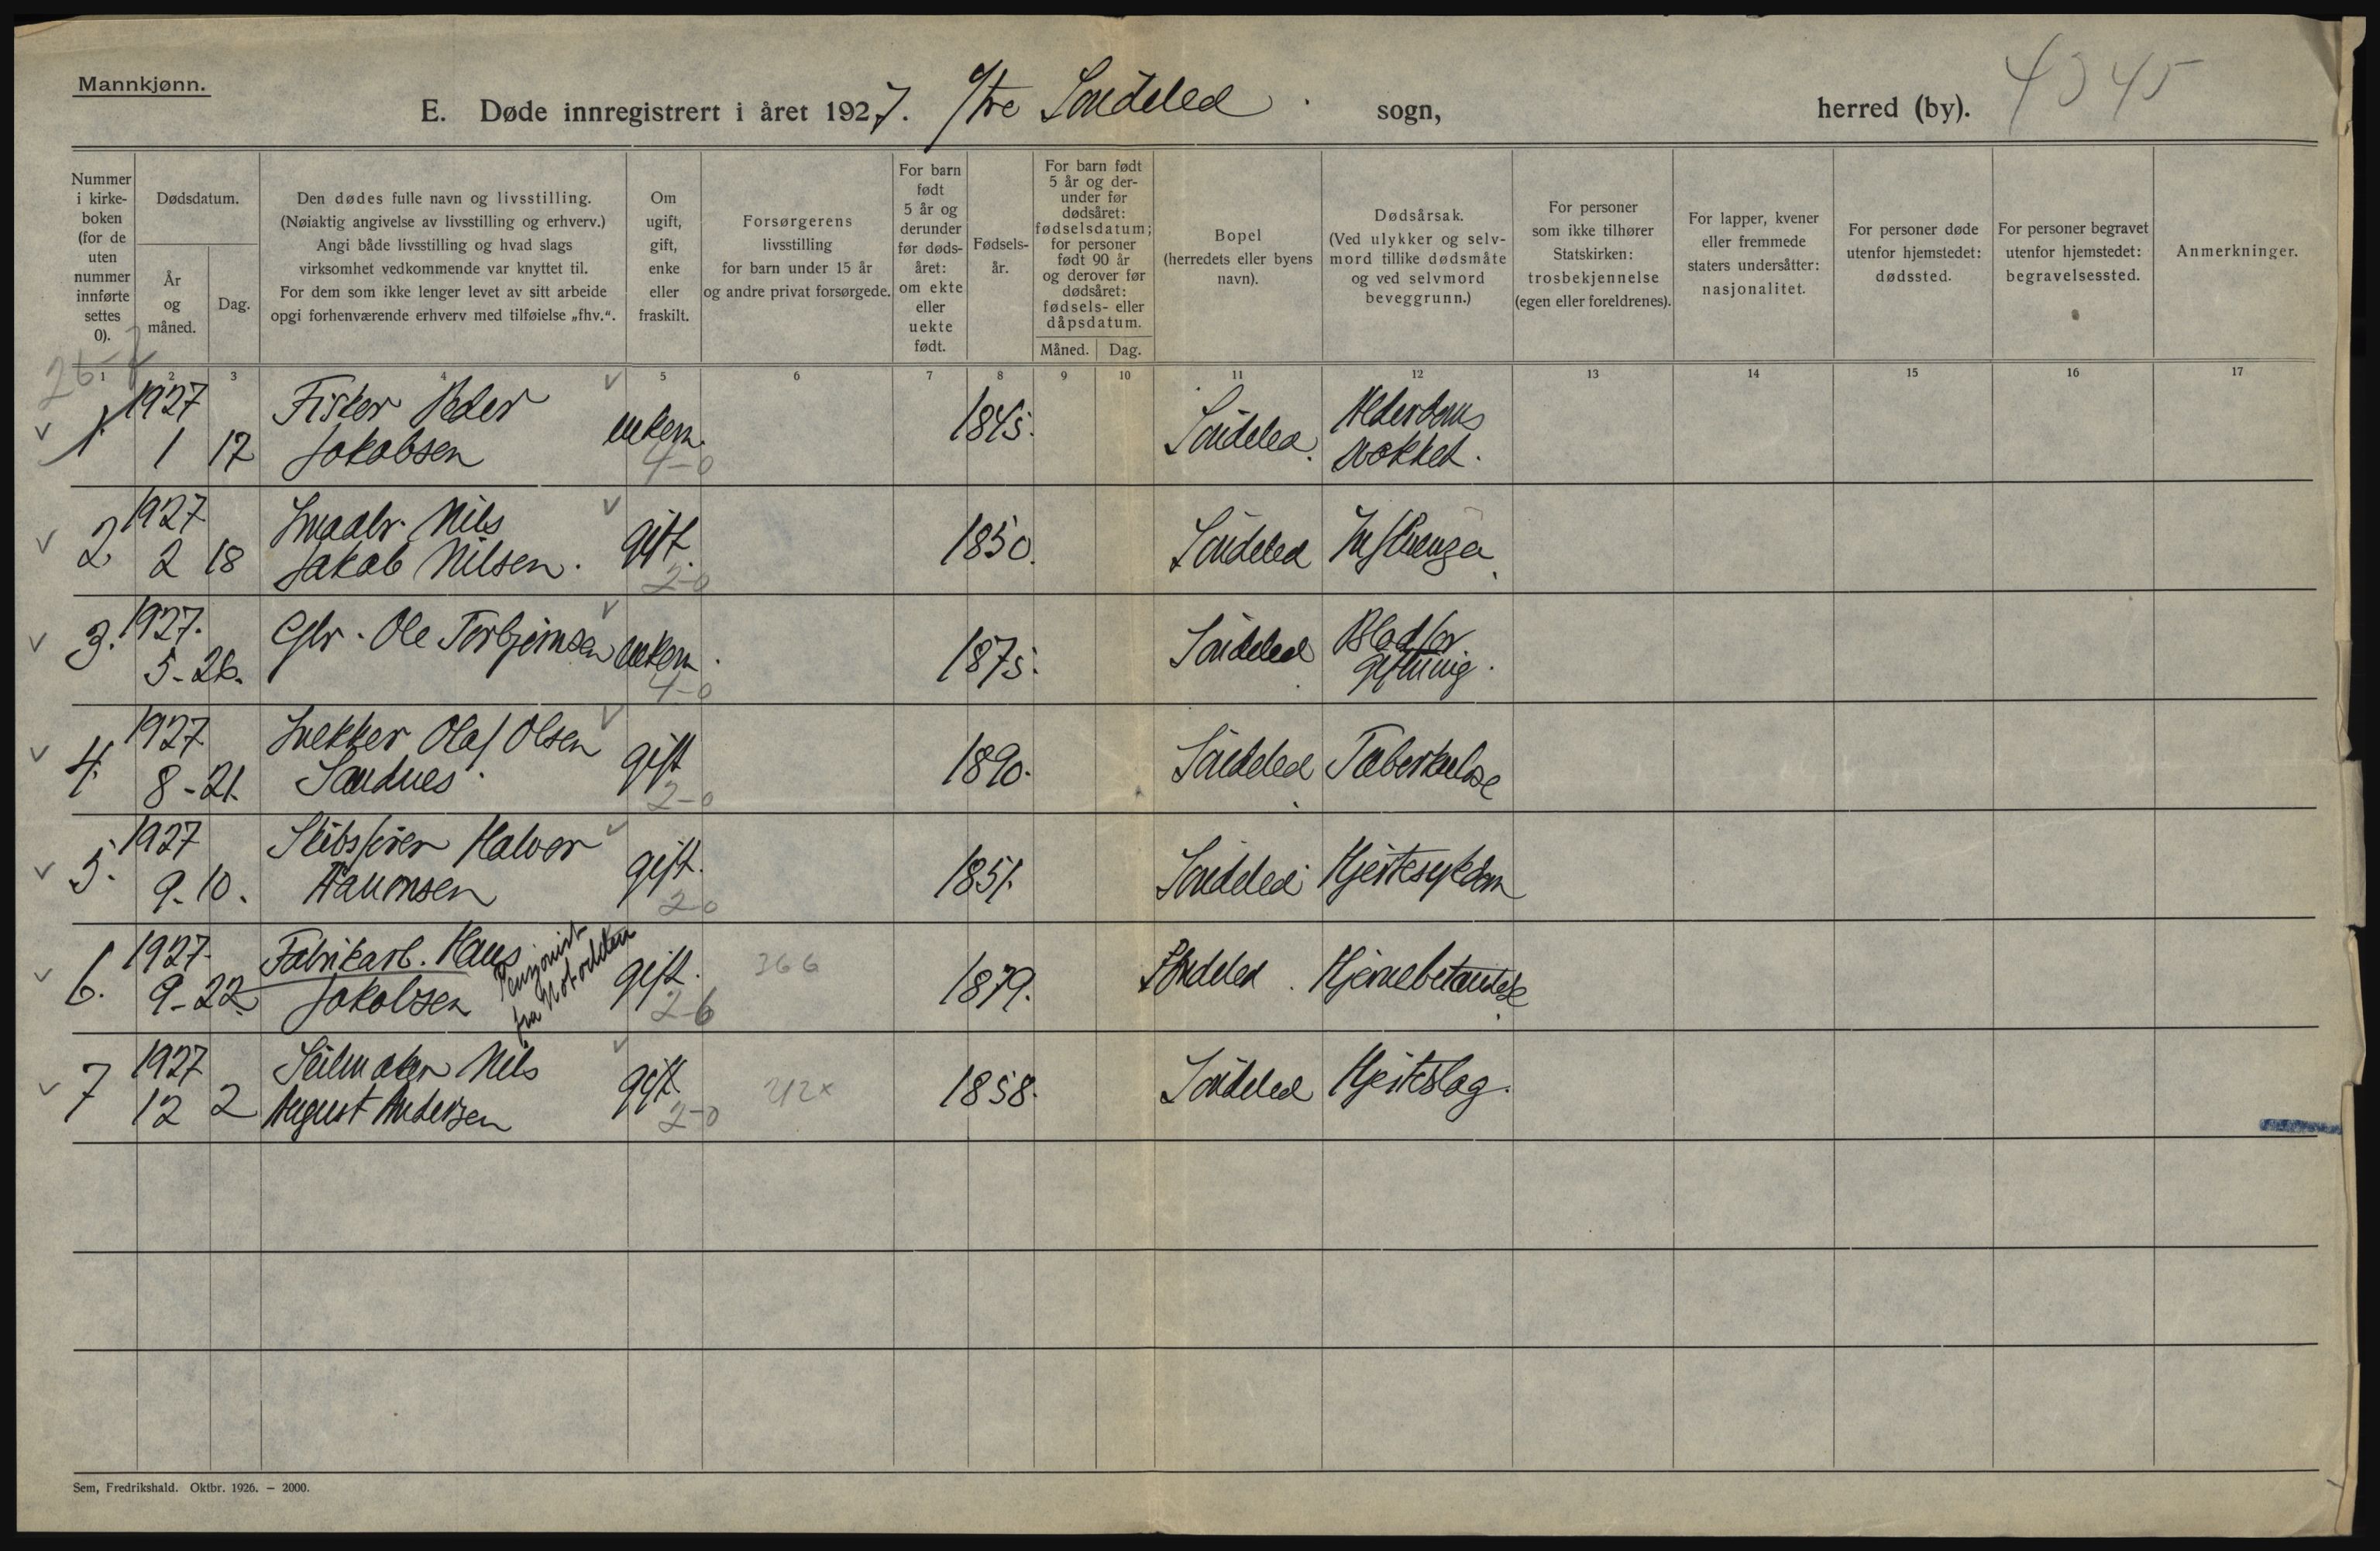 Mannkjønn.
E. Døde innregistrert i året 1927. Søndeled sogn, herred (by). 4345
Nummer i kirke- boken (for de uten nummer innførte settes 0).
Dødsdatum.
År og måned.
Dag.
Den dødes fulle navn og livsstilling.
(Nøiaktig angivelse av livsstilling og erhverv.)
Angi både livsstilling og hvad slags
virksomhet vedkommende var knyttet til.
For dem som ikke lenger levet av sitt arbeide
opgi forhenværende erhverv med tilføielse „fhv.“.
Om ugift, gift, enke eller fraskilt.
Forsørgerens
livsstilling
for barn under 15 år
og andre privat forsørgede.
For barn født 5 år og derunder før døds- året: om ekte eller uekte født.
Fødsels- år.
For barn født 5 år og der- under før dødsåret: fødselsdatum; for personer født 90 år og derover før dødsåret: fødsels- eller dåpsdatum.
Måned. Dag.
Bopel
(herredets eller byens
navn).
Dødsårsak.
(Ved ulykker og selv-
mord tillike dødsmåte
og ved selvmord
beveggrunn.)
For personer
som ikke tilhører
Statskirken:
trosbekjennelse
(egen eller foreldrenes).
For lapper, kvener
eller fremmede
staters undersåtter:
nasjonalitet.
For personer døde
utenfor hjemstedet:
dødssted.
For personer begravet
utenfor hjemstedet:
begravelsessted.
Anmerkninger.
1 2 3 4 5 6 7 8 9 10 11 12 13 14 15 16 17
1. 1927 1 17 Fisker Peder Jakobsen enkem. 4-0 1845. Søndeled. Alderdoms
2 1927 2 18 Nils Jakob Nilsen. gift. 2-0 1850. Søndeled Influenza
3. 1927. 5-26. Ole Torbjørnsen enkem. 4-0 1875. Søndeled Blodforgiftning.
4. 1927 8-21. Snekker Olaf Olsen Sandnes. gift 2-0 1890. Søndeled Tuberkulose
5. 1927 9-10. Skibsfører Halvor Aamonsen gift. 2-0 1851. Søndeled Hjertesykdom
6. 1927. 9-22. Fabrikarb. Hans Jakobsen Pensjonist fra Notodden gift. 2-6 366 1879. Søndeled. Hjernebetændelse
7 1927 12 2 Seilmaker Nils August Andersen gift. 2-0 212x 1858. Søndeled Hjerteslag.
Sem, Fredrikshald. Oktbr. 1926. – 2000.